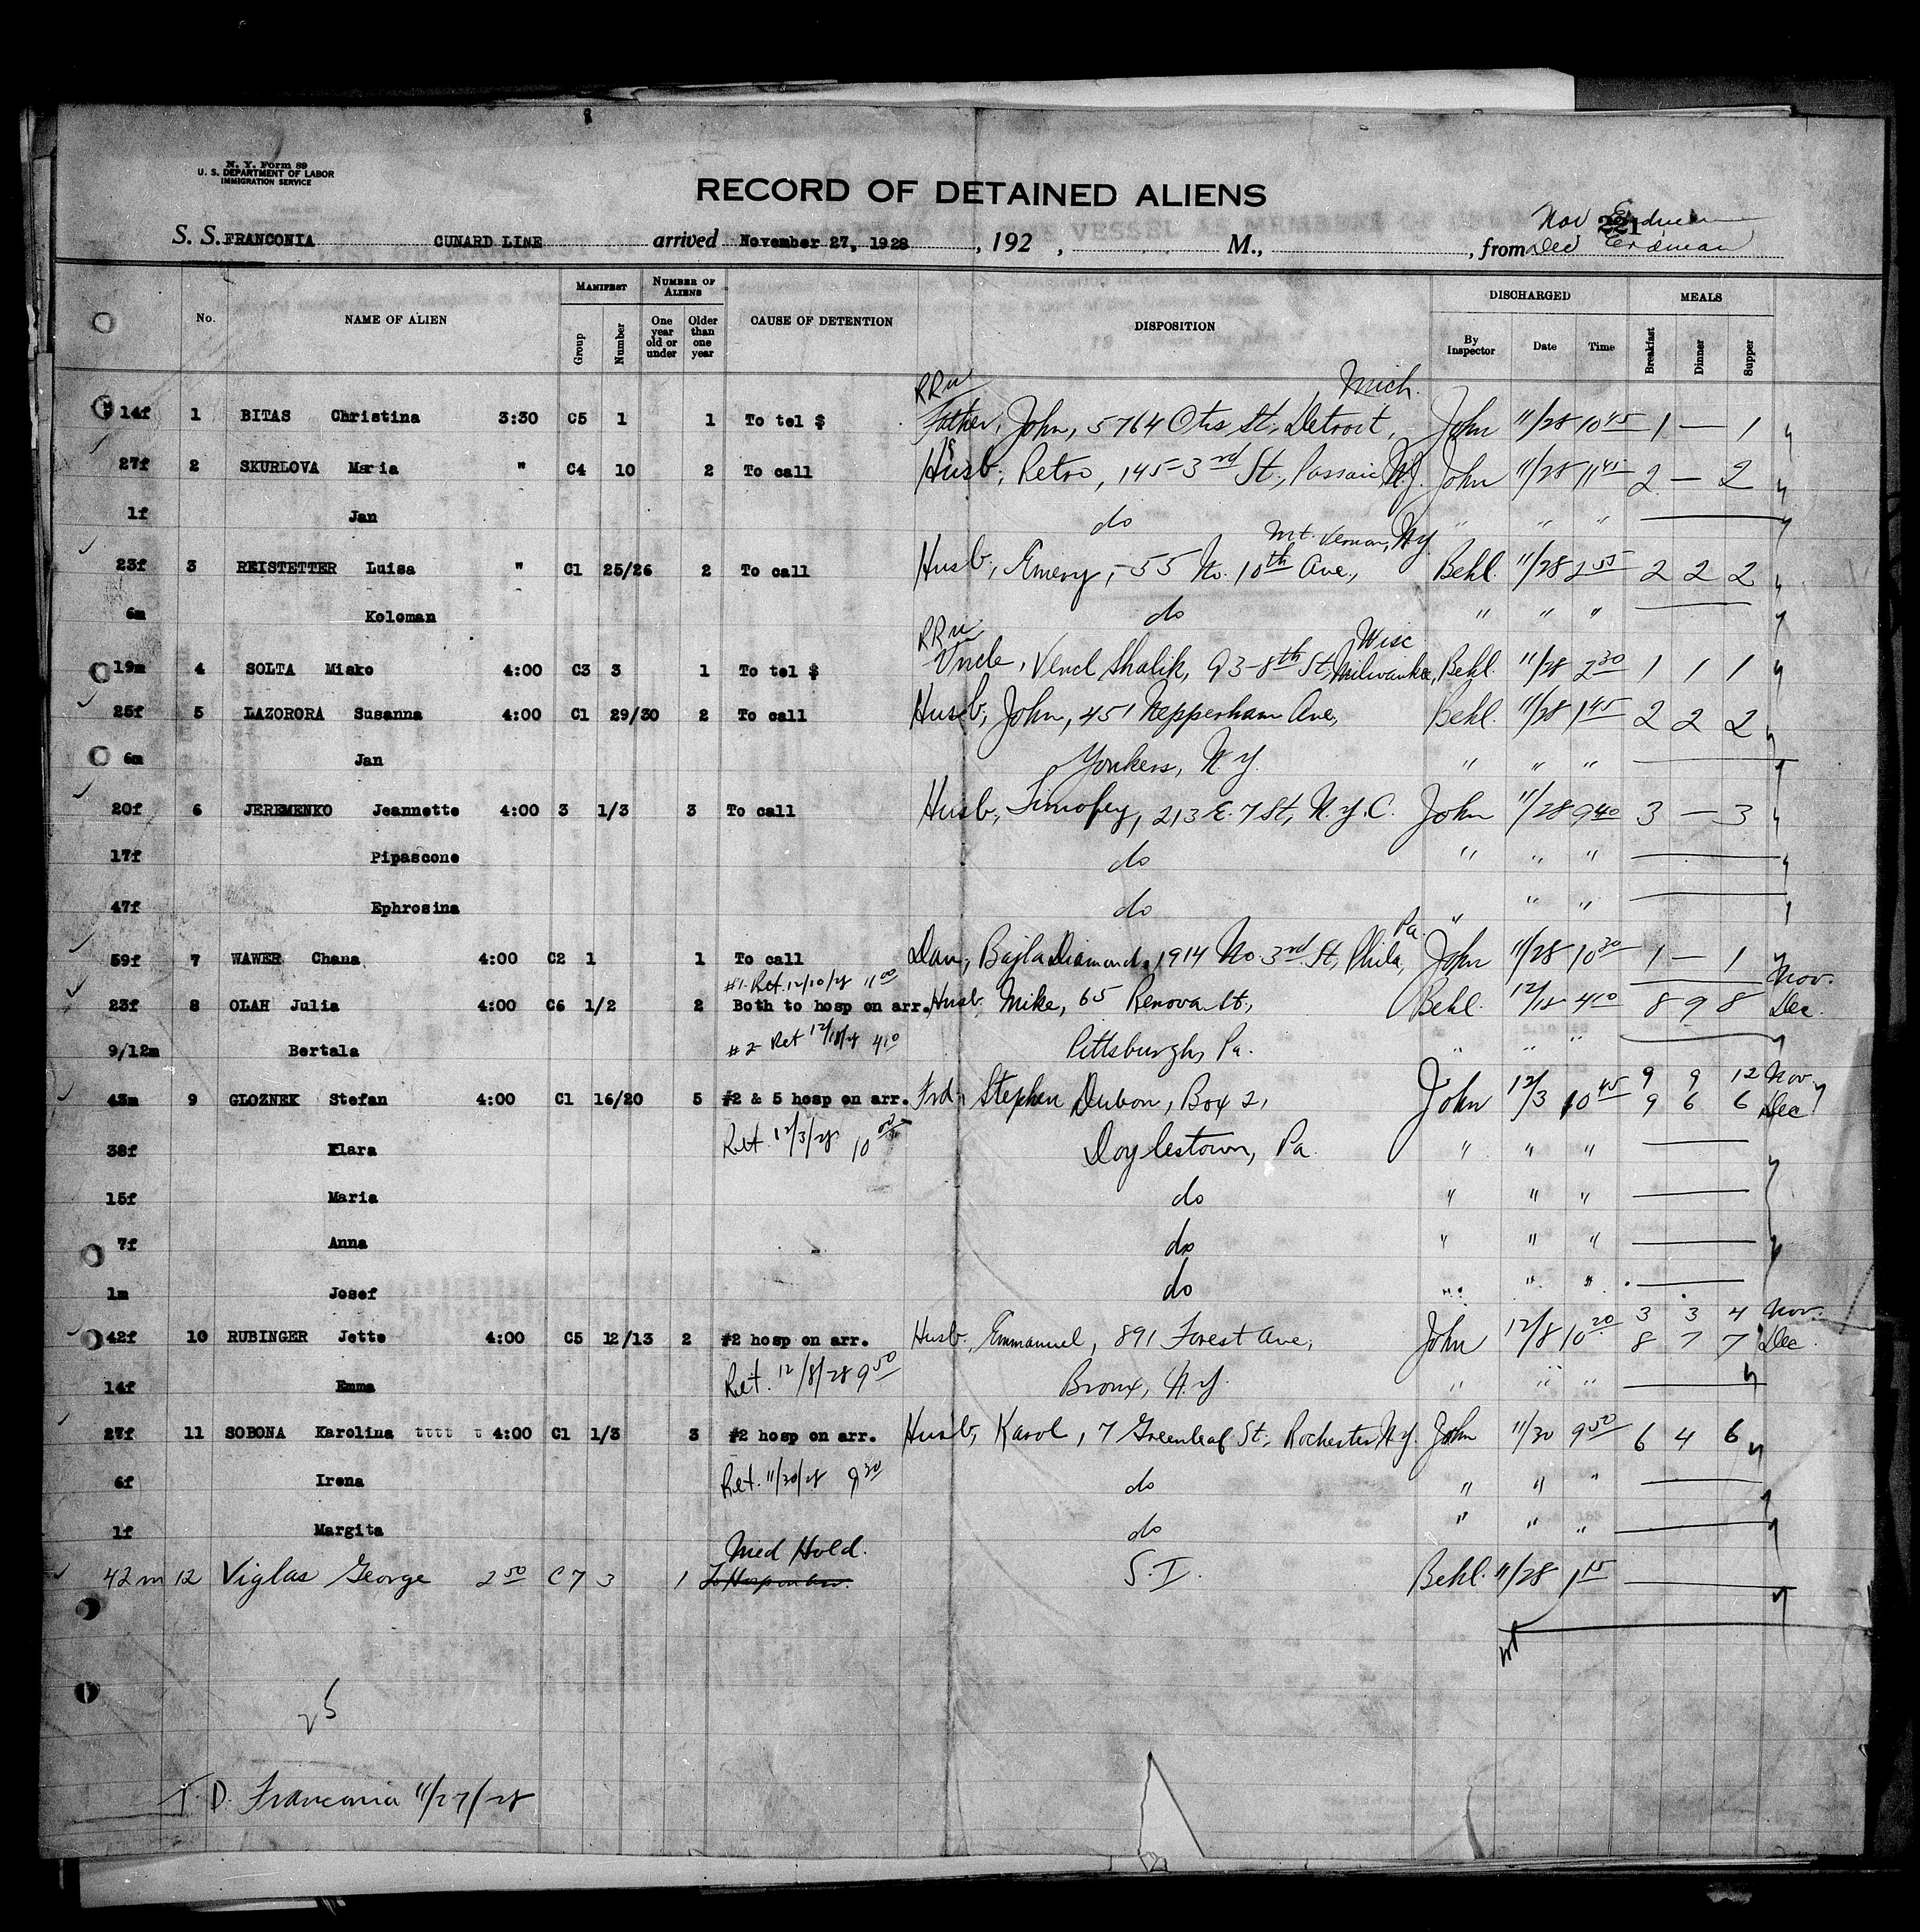 N. Y. Form 89
U. S. DEPARTMENT OF LABOR
IMMIGRATION SERVICE
RECORD OF DETAINED ALIENS
221
Nov Erdman
S. S. FRANCONIA CUNARD LINE arrived November 27, 1928, 192 , M., , from Dec Erdman
No. NAME OF ALIEN MANIFEST Group Number NUMBER OF ALIENS One year old or under Older than one year CAUSE OF DETENTION DISPOSITION DISCHARGED By Inspector Date Time MEALS Breakfast Dinner Supper
RRu Mich.
14f 1 BITAS Christina 3:30 C5 1 1 To tel $ Father, John, 5764 Otis St., Detroit, John 11/28 10 45 1 — 1
27f 2 SKURLOVA Maria " C4 10 2 To call Husb, Petro, 145-3rd St., Passaic N.J. John 11/28 11 45 2 — 2
1f Jan do " " "
Mt. Vernon, N.Y.
23f 3 REISTETTER Luisa " C1 25/26 2 To call Husb, Emery, 55 No. 10th Ave, Behl. 11/28 2 55 2 2 2
6m Koloman do " " "
RRu Wisc
19m 4 SOLTA Misko 4:00 C3 3 1 To tel $ Uncle, Vencl Shalik, 93-8th St, Milwaukee, Behl. 11/28 2 30 1 1 1
25f 5 LAZORORA Susanna 4:00 C1 29/30 2 To call Husb, John, 451 Nepperham Ave, Behl. 11/28 1 45 2 2 2
6m Jan Yonkers, N.Y. " " "
20f 6 JEREMENKO Jeannette 4:00 3 1/3 3 To call Husb, Timofey, 213 E. 7 St, N.Y.C. John 11/28 9 40 3 — 3
17f Pipascone do " " "
47f Ephrosina do " " "
Pa.
59f 7 WAWER Chana 4:00 C2 1 1 To call Dau, Bajla Diamond, 1914 No. 3rd St, Phila, John 11/28 10 30 1 — 1
#1 Ret. 12/10/28 11 00 Nov.
23f 8 OLAH Julia 4:00 C6 1/2 2 Both to hosp on arr. Husb. Mike, 65 Renova St, Behl. 12/18 4 10 8 9 8 Dec.
9/12m Bertala #2 Ret 12/18/28 4 10 Pittsburgh, Pa. " " "
9 9 12 Nov
43m 9 GLOZNEK Stefan 4:00 C1 16/20 5 #2 & 5 hosp on arr. Frd, Stephen Dubon, Box 2, John 12/3 10 45 9 6 6 Dec
38f Klara Ret. 12/3/28 10 00 Doylestown, Pa. " " "
15f Maria do " " "
7f Anna do " " "
1m Josef do " " "
3 3 4 Nov.
42f 10 RUBINGER Jette 4:00 C5 12/13 2 #2 hosp on arr. Husb. Emmanuel, 891 Forest Ave, John 12/8 10 20 8 7 7 Dec
14f Emma Ret. 12/8/28 9 50 Bronx, N.Y. " " "
27f 11 SOBONA Karolina tttt t 4:00 C1 1/3 3 #2 hosp on arr. Husb, Karol, 7 Greenleaf St, Rochester N.Y. John 11/30 9 50 6 4 6
6f Irena Ret. 11/30/28 9 30 do " " "
1f Margita do " " "
Med Hold.
42m 12 Viglas George 2 50 C7 3 1 To Hosp on arr. S.I. Behl. 11/28 1 15
25
T. D. Franconia 11/27/28